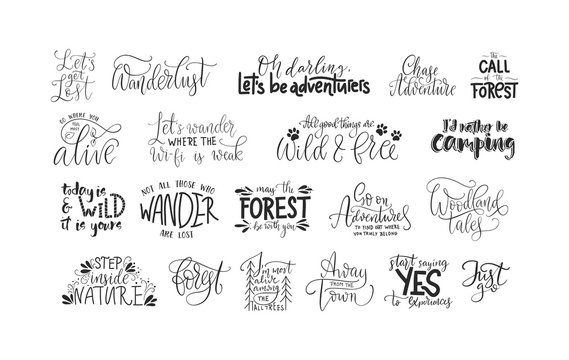 Let's
get
Lost
Wanderlust
Oh darling,
Let's be adventurers
Chase
Adventure
the
CALL
of the
FOREST
GO WHERE YOU
FEEL MOST
alive
Let's wander
WHERE THE
Wi-fi is weak
All good things are
Wild & free
I'd rather be
camping
today is
& WILD
it is yours
NOT ALL THOSE WHO
WANDER
ARE LOST
may the
FOREST
be with you
Go on
Adventures
TO FIND OUT WHERE
YOU TRULY BELONG
Woodland
Tales
STEP
inside
NATURE
forest
I'm most
alive
among
THE
TALL TREES
Away
FROM THE
Town
start saying
YES
to experiences
Just
go